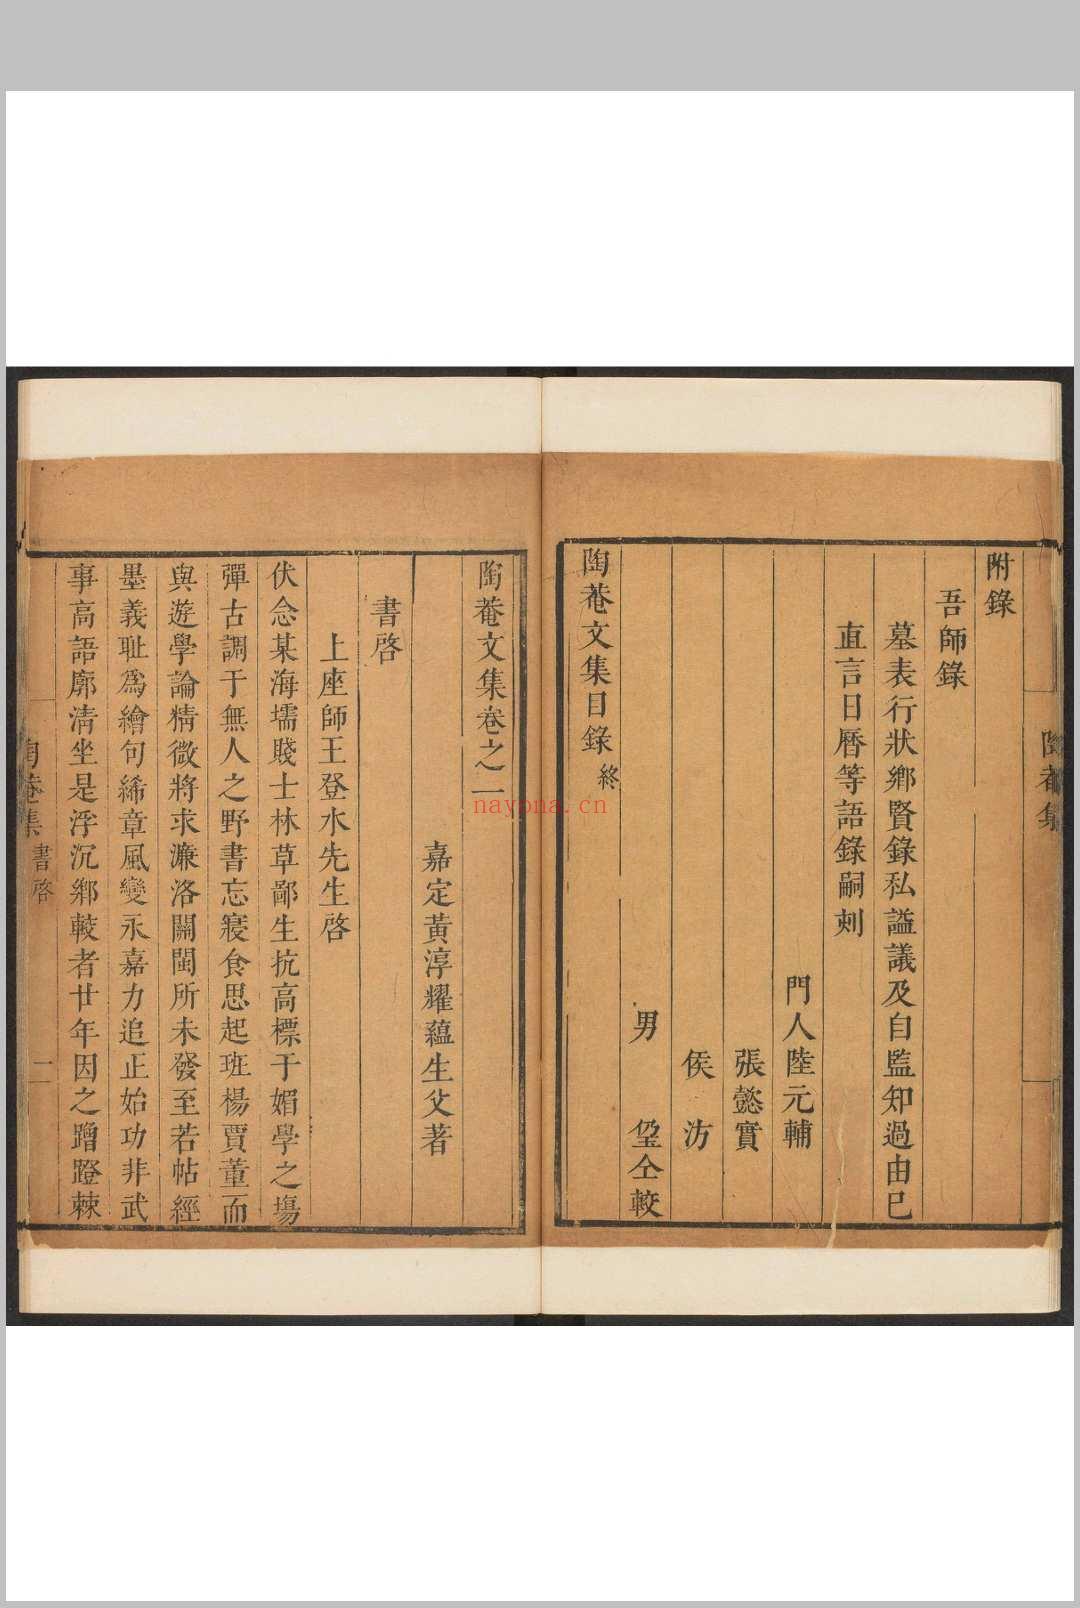 附錄
吾師錄
墓表行狀鄉賢錄私謚議及自監知過由已
直言日曆等語錄嗣刻
門人陸元輔
張懿實
侯汸
男 㘴仝較
陶菴文集目錄終
陶菴集
陶菴文集卷之一
嘉定黃淳耀蘊生父著
書啓
上座師王登水先生啓
伏念某海壖賤士林草鄙生抗高標于媚學之塲
彈古調于無人之野書忘寢食思起班楊賈董而
與遊學論精微將求濂洛關閩所未發至若帖經
墨義恥爲繪句絺章風變永嘉力追正始功非武
事高語廓清坐是浮沉鄉較者廿年因之蹭蹬棘
陶菴集 書啓 一
nayona.cn